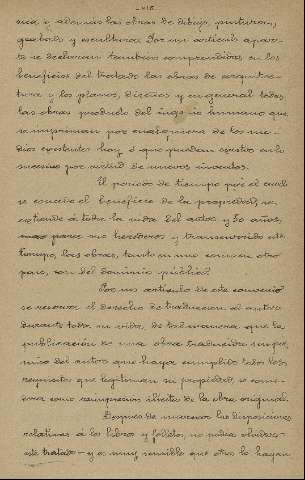 sica y, además las obras de dibujo, pintura,
grabado y escultura. Por un artículo aparte
se declaran también comprendidas en los
beneficios del tratado las obras de arquitec-
tura y los planos, diseños y en general todas
las obras producto del ingenio humano que
se impriman por cualquiera de los me-
dios existentes hoy ó que puedan serlo en lo
sucesivo por virtud de nuevos inventos.
El periodo de tiempo por el cual
se concede el beneficio de la propiedad, se
extiende á toda la vida del autor y 50 años,
para sus herederos y transcurrido este
tiempo, las obras, tanto en uno como en otro
pais, son del dominio público.
Por un artículo de este convenio
se reserva el derecho de traduccion al autor
durante toda su vida, de tal manera que la
publicación de una obra traducida sin per-
miso del autor que haya cumplido todos los
requisitos que legitiman su propiedad, se consi-
dera como reimpresion ilicita de la obra original.
Después de mencionar las disposiciones
relativas á los libros y folletos, no podia olvidarse
este tratado — y es muy sensible que otros lo hayan